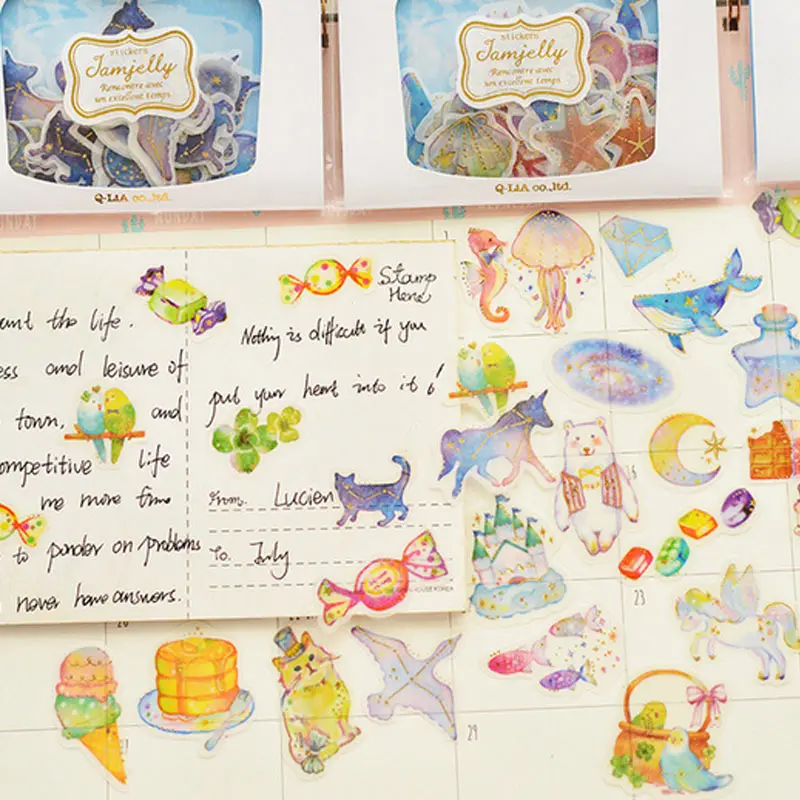 stickers
Jamjelly
Rencontre avec
un excellent temps.
Q-LiA co.,ltd.
stickers
Jamjelly
Rencontre avec
un excellent temps.
Q-LiA co.,ltd.
MONDAY
the life.
and leisure of
town, and
competitive life
me more time
to ponder on problems
never have answers.
Stamp
Here
Nothing is difficult if you
put your heart into it!
From. Lucien
To. July
HOUSE KOREA
16
20
21
23
28
29